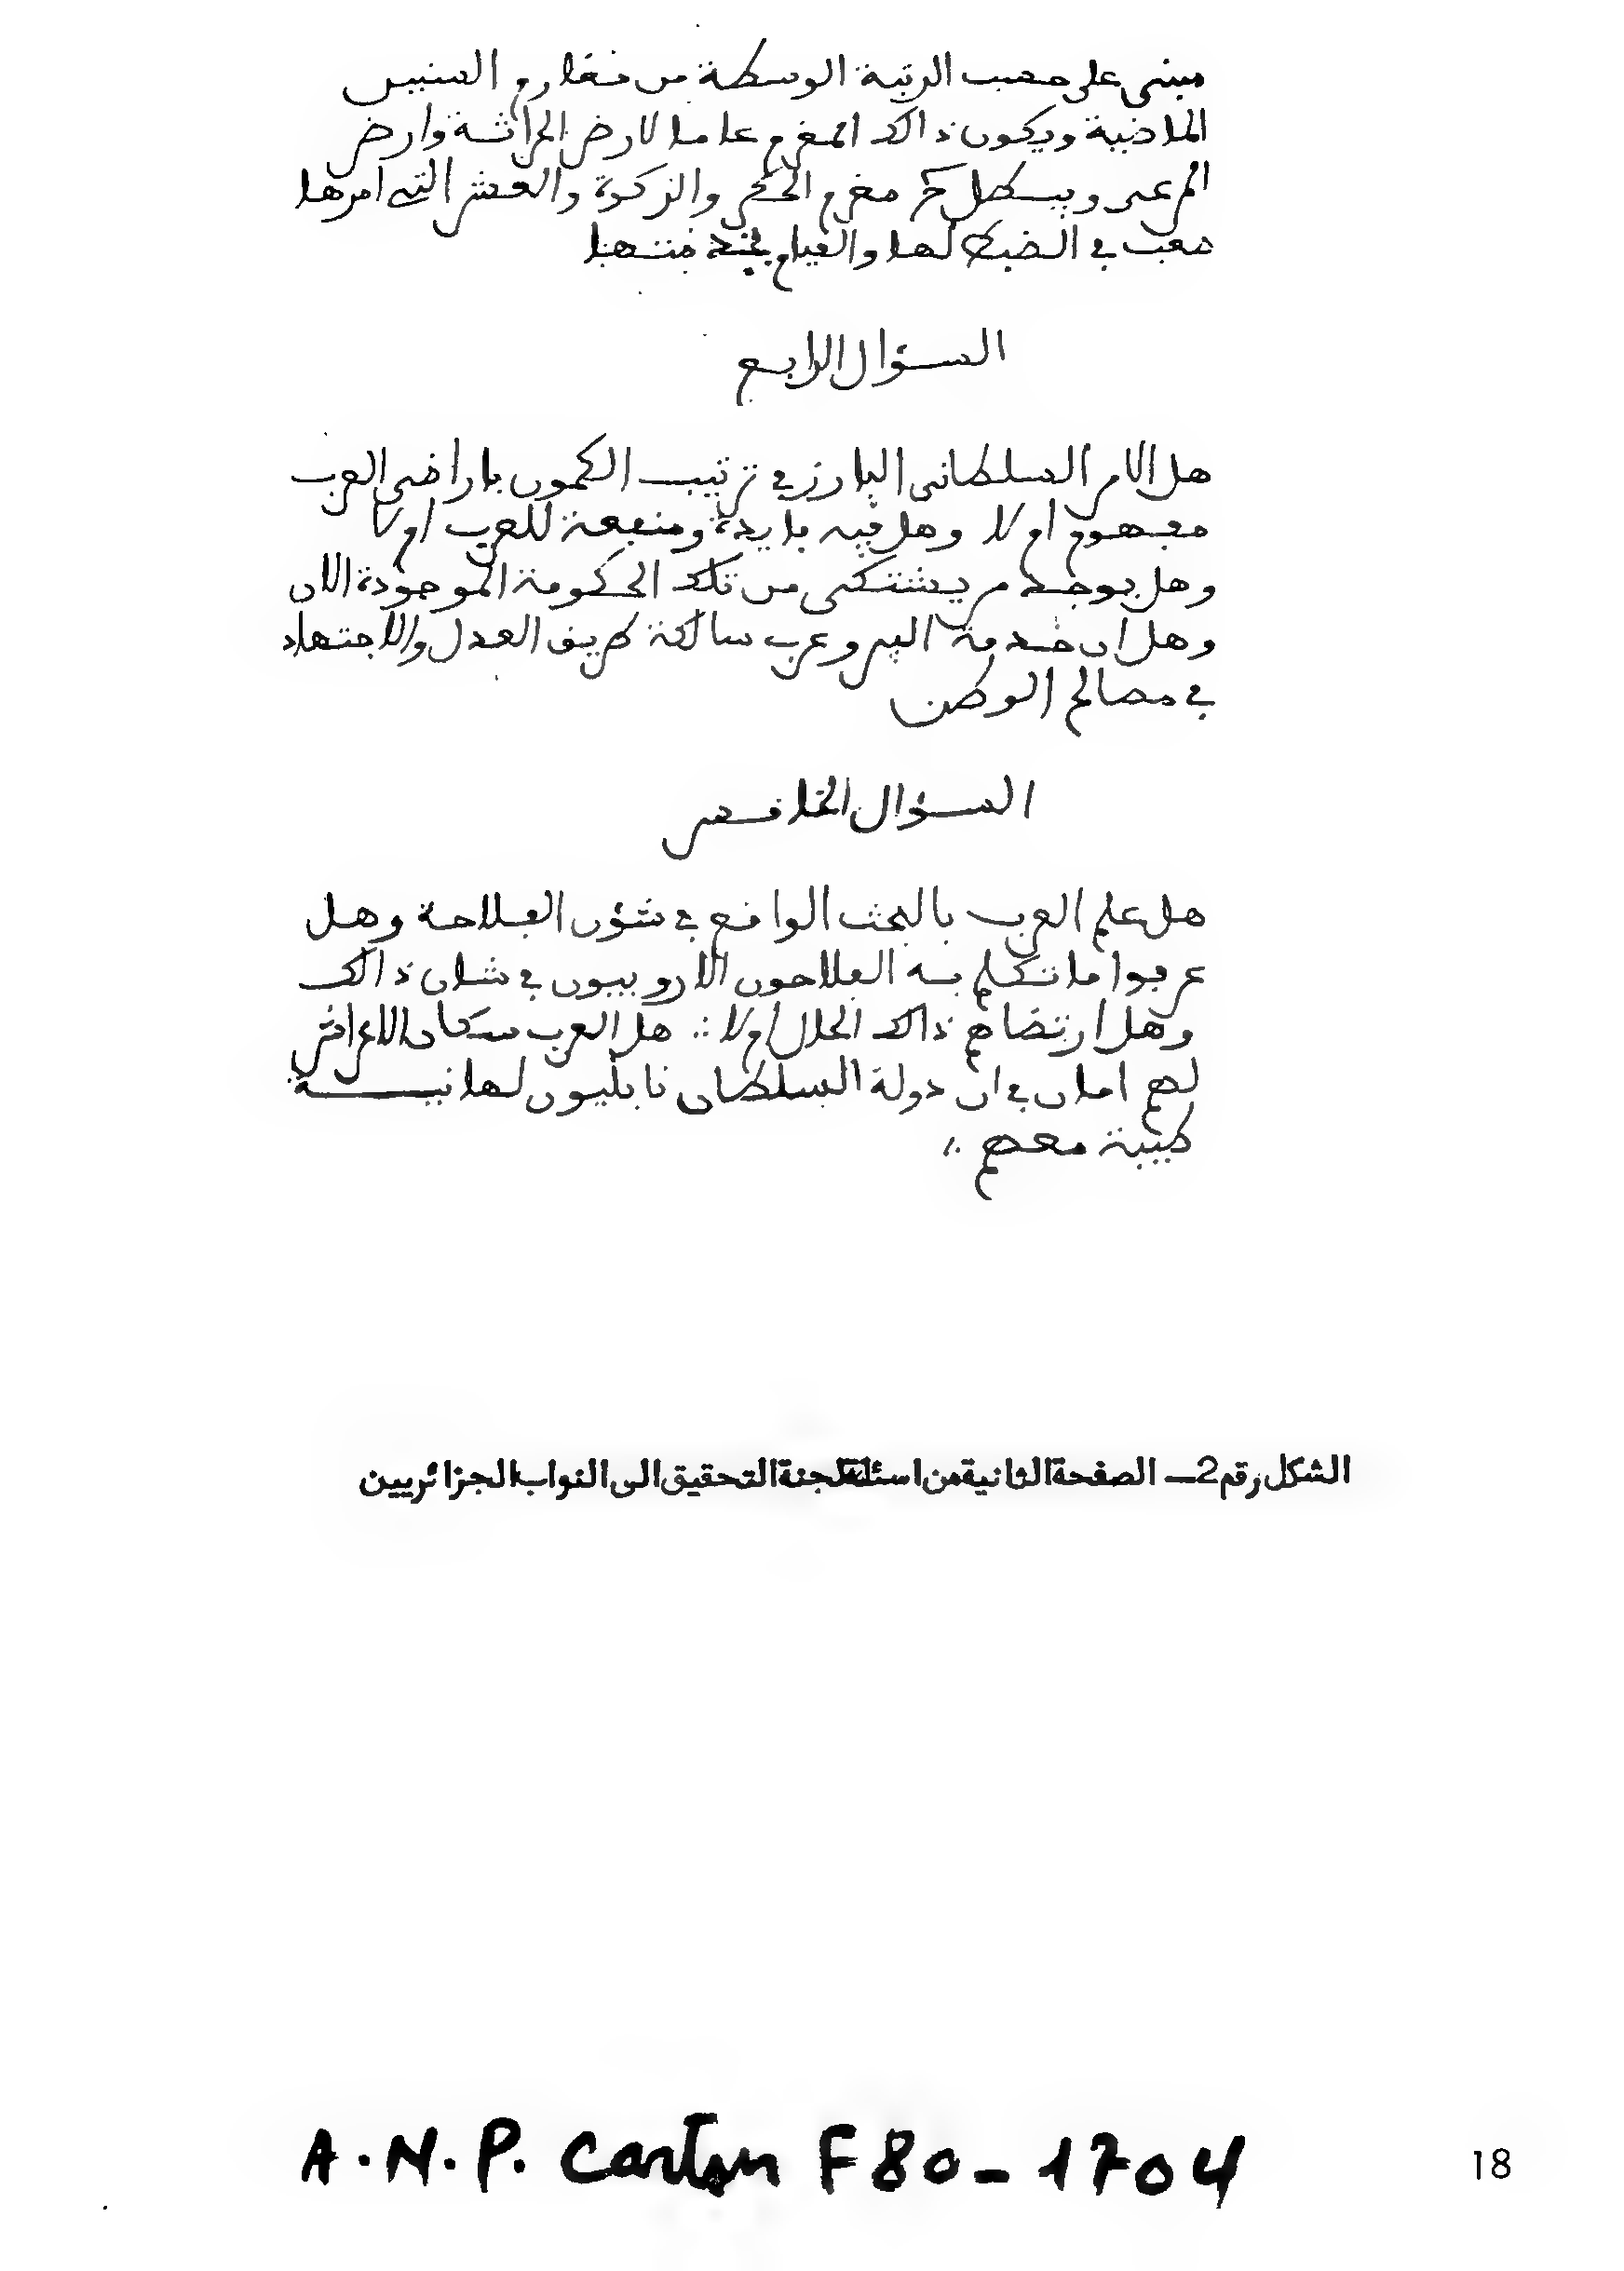 مبني على حسب الرتبة الوسطة من مغارم السنين
الماضية ويكون ذالك المغرم عاما لارض الحراثة وارض
المرعى ويبطل حـ مغرم الحكر والزكوة والعشر التي امرها
صعب في الضبط لها والقيام
السؤال الرابع
هل الامر السلطاني البارز في ترتيب الكمون باراضي العرب
مفهوم او لا وهل فيه فايدة ومنفعة للعرب او لا
وهل يوجد من يشتكي من تلك الحكومة الموجودة الان
وهل ان خدمة البيرو عرب سالكة طريق العدل والاجتهاد
في مصالح الوطن
السؤال الخامس
هل علم العرب بالبحث الواقع في شؤن الفلاحة وهل
عرفوا ما تكلم به الفلاحون الاروبيون في شان ذالك
وهل ارتضاهم ذاك الحال او لا ∴ هل العرب سكان الاعراش
لهم امان في ان دولة السلطان نابليون لها نية
طيبة معهم
الشكل رقم 2 ـ الصفحة الثانية من اسئلة لجنة التحقيق الى النواب الجزائريين
A.N.P. Carton F 80 - 1704
18